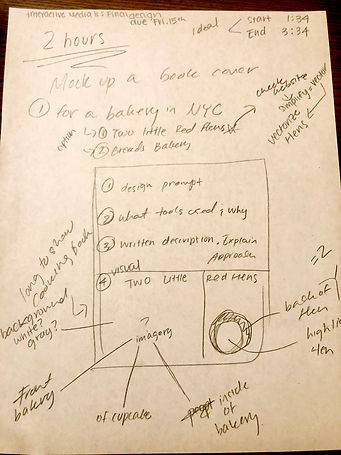 Interactive Media II: Final design
due Fri. 15th
ideal
Start 1:34
End 3:34
2 hours
Mock up a book cover
① for a bakery in NYC
option
① Two Little Red Hens
② Breads Bakery
check website
simplify = vector
vectorize
Hens
① design prompt
② what tools used & why
③ written description. Explain
Approach
④ visual
Two Little
Red Hens
?
imagery
long to show
book
background
white?
gray?
=2
back of
Hen
Front
bakery
of cupcake
of inside
of
bakery